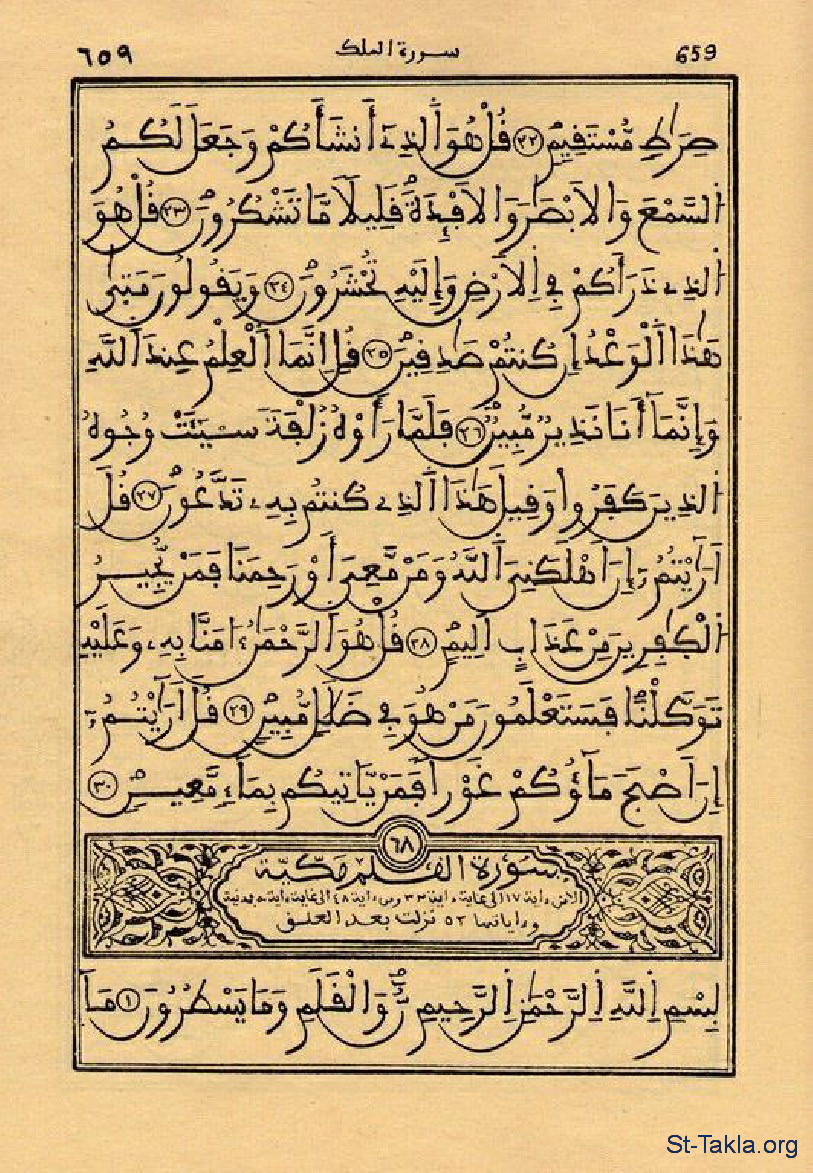 ٦٥٩ سورة الملك 659
صِرَٰطٍ مُّسْتَقِيمٍ ٢٢ قُلْ هُوَ اَ۬لذِےٓ أَنشَأَكُمْ وَجَعَلَ لَكُمُ
اُ۬لسَّمْعَ وَالَابْصَٰرَ وَالَافْـِٕدَةَ قَلِيلاٗ مَّا تَشْكُرُونَ ٢٣ قُلْ هُوَ
اَ۬لذِے ذَرَأَكُمْ فِے اِ۬لَارْضِ وَإِلَيْهِ تُحْشَرُونَ ٢٤ وَيَقُولُونَ مَتَىٰ
هَٰذَا اَ۬لْوَعْدُ إِن كُنتُمْ صَٰدِقِينَ ٢٥ قُلِ اِنَّمَا اَ۬لْعِلْمُ عِندَ اَ۬للَّهِ
وَإِنَّمَآ أَنَا نَذِيرٌ مُّبِينٌ ٢٦ فَلَمَّا رَأَوْهُ زُلْفَةً سِيٓـَٔتْ وُجُوهُ
اُ۬لذِينَ كَفَرُواْ وَقِيلَ هَٰذَا اَ۬لذِے كُنتُم بِهِۦ تَدَّعُونَ ٢٧ قُلَ
اَرَٰٓيْتُمُۥٓ إِنَ اَهْلَكَنِيَ اَ۬للَّهُ وَمَن مَّعِيَ أَوْ رَحِمَنَا فَمَنْ يُّجِيرُ
اُ۬لْكَٰفِرِينَ مِنْ عَذَابٍ اَلِيمٍ ٢٨ قُلْ هُوَ اَ۬لرَّحْمَٰنُ ءَامَنَّا بِهِۦ وَعَلَيْهِ
تَوَكَّلْنَا فَسَتَعْلَمُونَ مَنْ هُوَ فِے ضَلَٰلٍ مُّبِينٍ ٢٩ قُلَ اَرَٰٓيْتُمُۥٓ
إِنَ اَصْبَحَ مَآؤُكُمْ غَوْراً فَمَنْ يَّاتِيكُم بِمَآءٍ مَّعِينٍ ٣٠
٦٨
سورة القلم مكية
الا من ءاية ١٧ الى غاية ءاية ٣٣ ومن ءاية ٤٨ الى غاية ءاية ٥٠ مدنية
وءاياتها ٥٢ نزلت بعد العلق
بِسْمِ اِ۬للَّهِ اِ۬لرَّحْمَٰنِ اِ۬لرَّحِيمِ نٓ وَالْقَلَمِ وَمَا يَسْطُرُونَ ١ مَآ
St-Takla.org